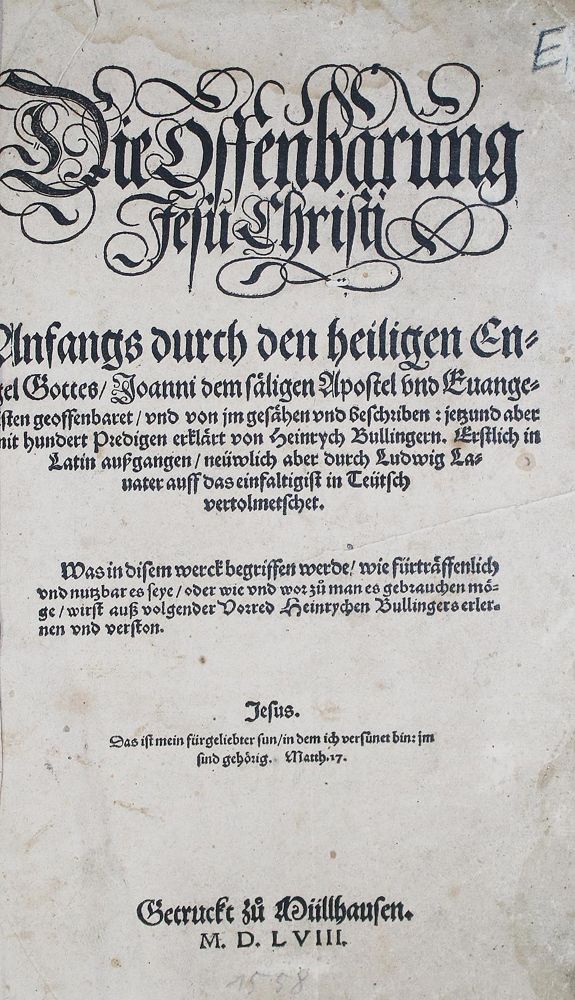 E
Die Offenbarung
Jesu Christi
Anfangs durch den heiligen En-
gel Gottes/ Joanni dem säligen Apostel vnd Euange-
listen geoffenbaret/ vnd von jm gesähen vnd beschriben: jetzund aber
mit hundert Predigen erklärt von Heinrych Bullingern. Erstlich in
Latin außgangen/ neüwlich aber durch Ludwig La-
uater auff das einfaltigist in Teütsch
vertolmetschet.
Was in disem werck begriffen werde/ wie fürträffenlich
vnd nutzbar es seye/ oder wie vnd worzů man es gebrauchen mö-
ge/ wirst auß volgender Vorred Heinrychen Bullingers erler-
nen vnd verston.
Jesus.
Das ist mein fürgeliebter sun/ in dem ich versünet bin: jm
sind gehörig. Matth.17.
Getruckt zů Müllhausen.
M. D. LVIII.
1558